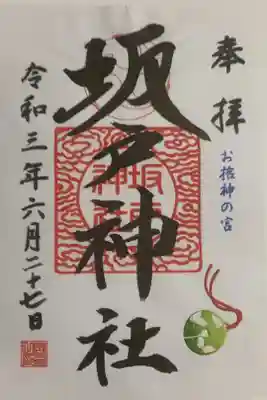 奉拝
お捻神の宮
坂戸神社
坂戸
神社
令和三年六月二十七日